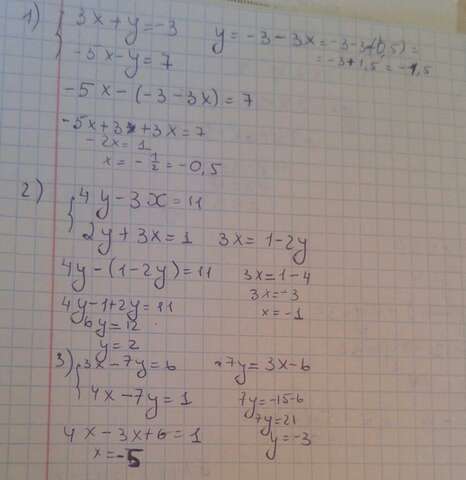 1) { 3x + y = -3    y = -3 - 3x = -3 - 3·(-0,5) =
-5x - y = 7    = -3 + 1,5 = -1,5
-5x - (-3 - 3x) = 7
-5x + 3 + 3x = 7
-2x = 1
x = -1/2 = -0,5
2) { 4y - 3x = 11
2y + 3x = 1    3x = 1 - 2y
4y - (1 - 2y) = 11    3x = 1 - 4
4y - 1 + 2y = 11    3x = -3
6y = 12    x = -1
y = 2
3) { 3x - 7y = 6    7y = 3x - 6
4x - 7y = 1    7y = -15 - 6
7y = 21
4x - 3x + 6 = 1    y = -3
x = -5